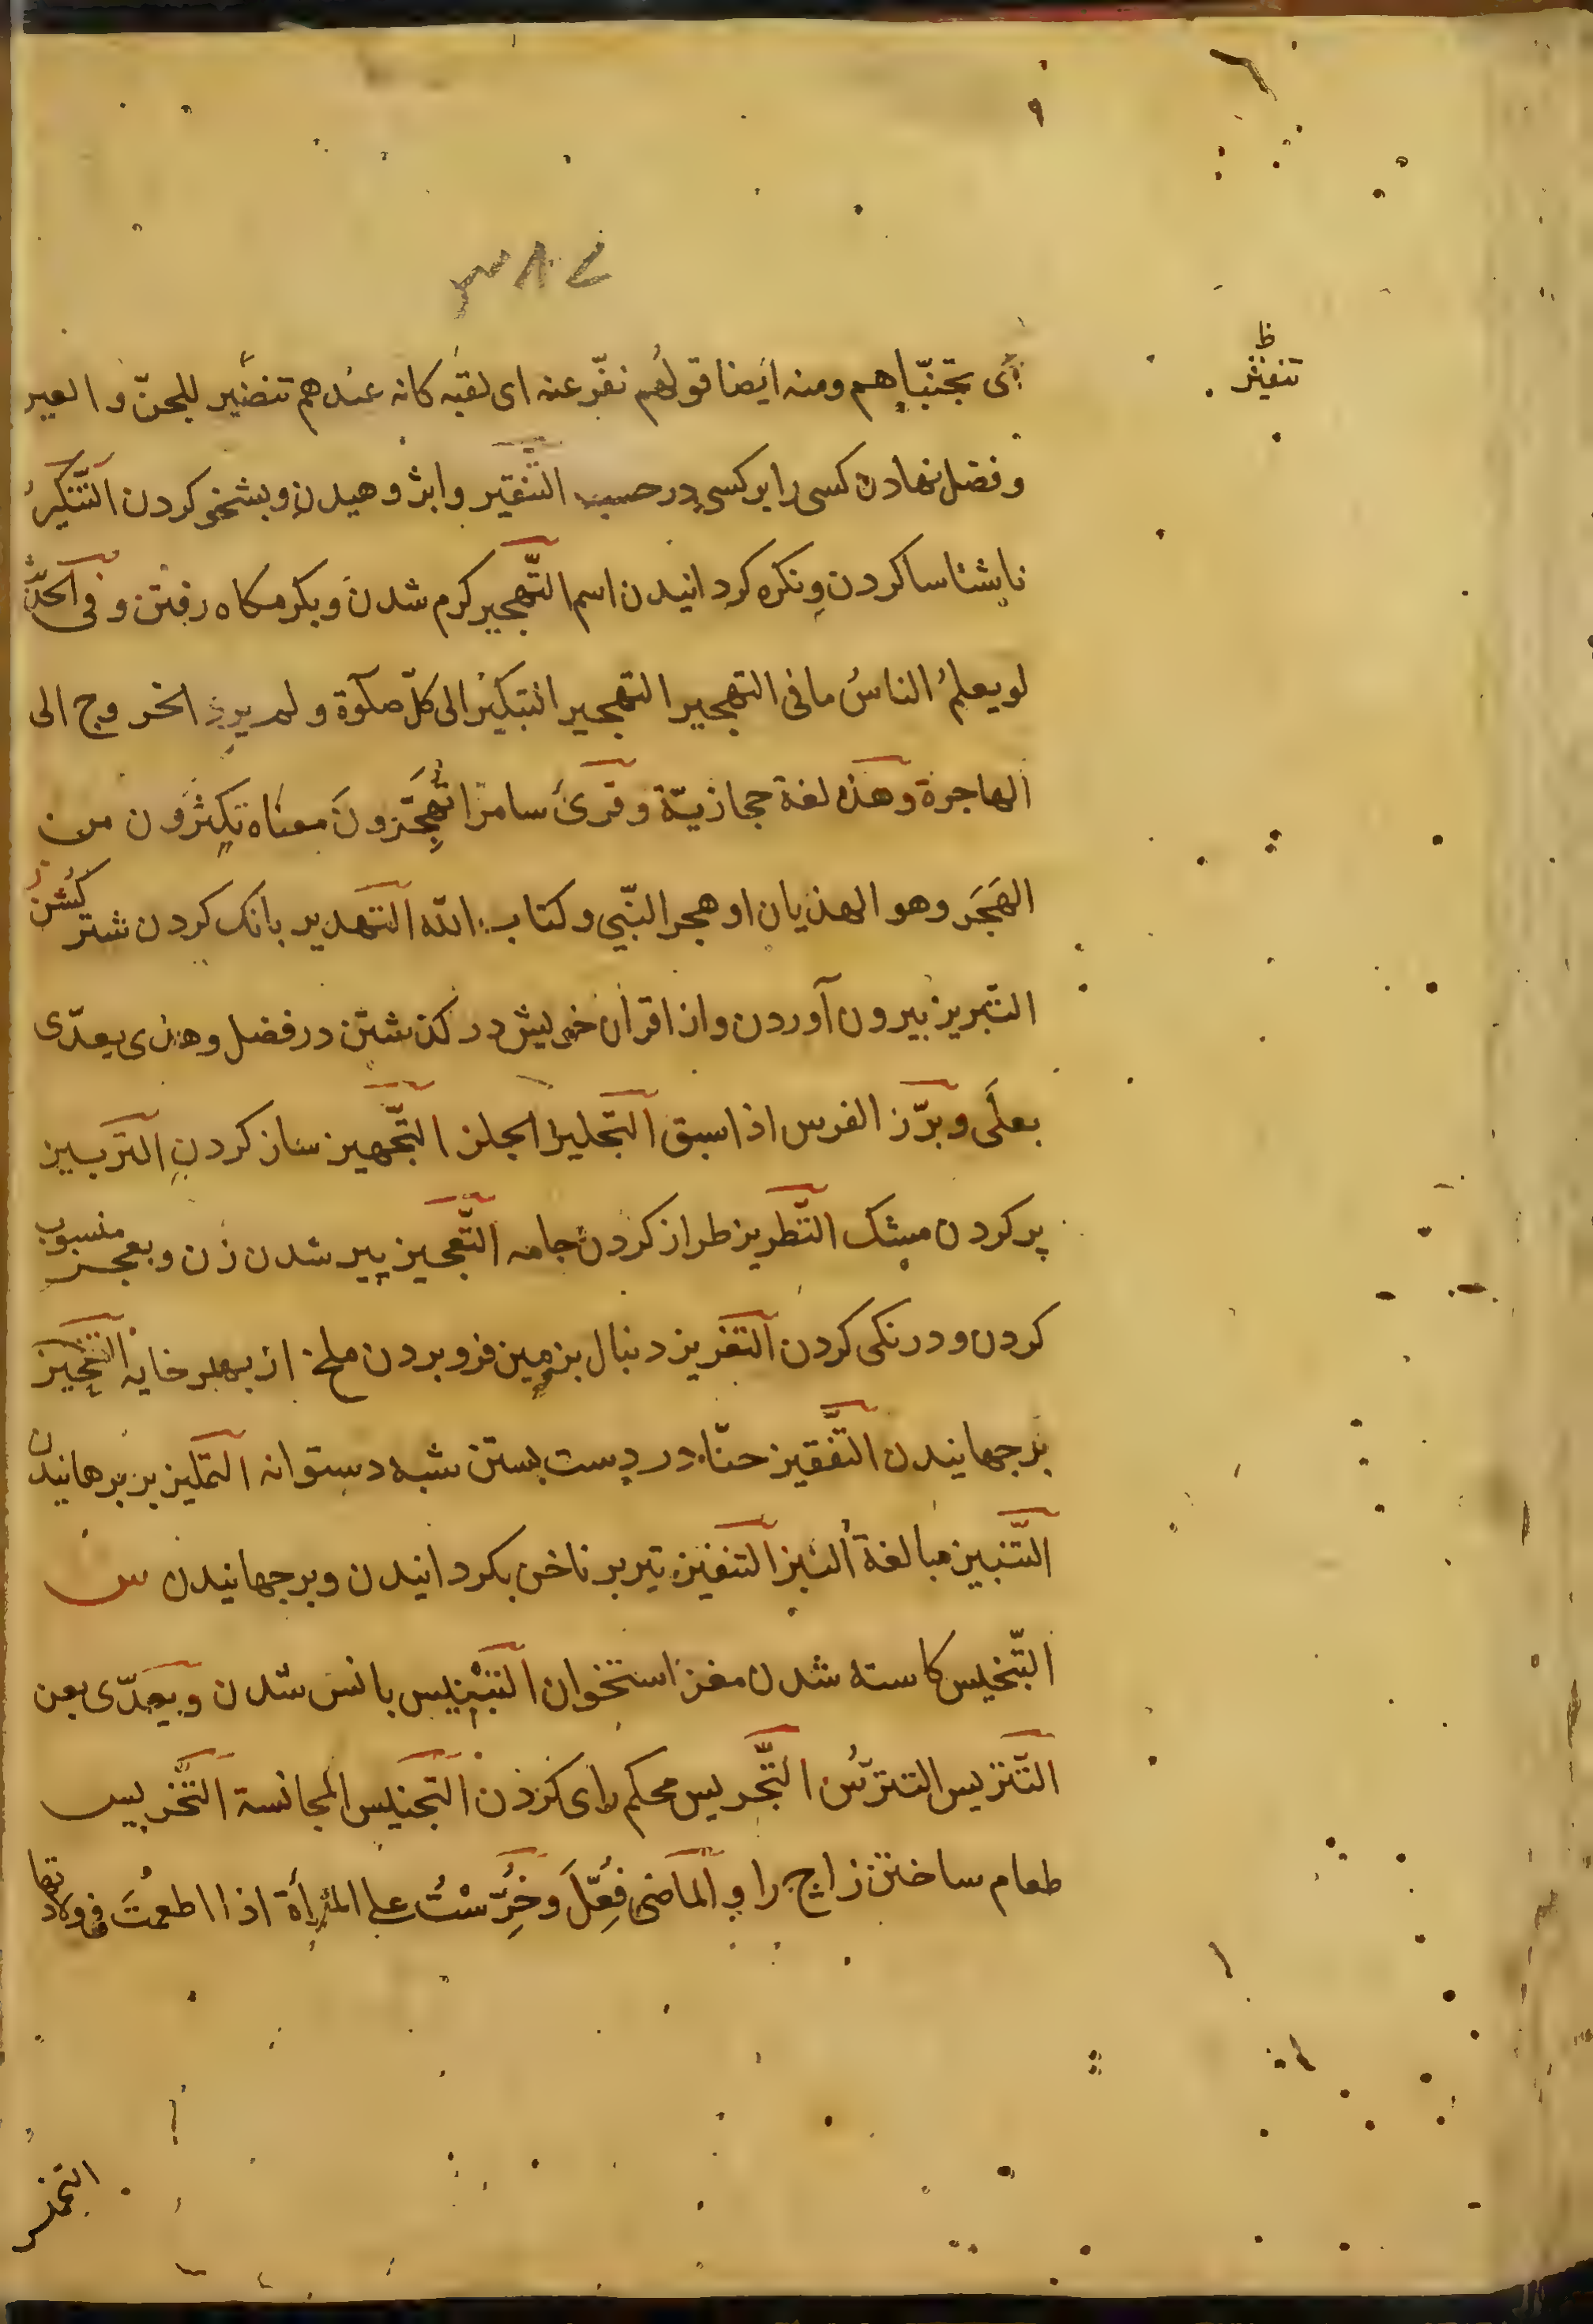 ٣٨٤
ظ
تنفیر
ای تجنّباهم ومنه ایضا قولهم نفّر عنه ای لقبّه کانه عندهم تنضیر للجنّ و العیر
و فضل نهادن کسی را بر کسی در حسب التّنقیر وابژوهیدن و بشخو کردن التّنکیر
ناشناسا کردن و نکره کردانیدن اسم التّهجیر کرم شدن و بکرمکاه رفتن و فی الحدیث
لو یعلمُ الناسُ ما فی التهجیر التهجیر التبکیر الی کلّ صلوة و لم یرد الخروج الی
الهاجرة وهذه لغة حجازیّة و قرئ سامرا تهجّرون معناه تکثرون من
الهَجَر وهو الهذیان او هجر النّبی و کتاب الله التّهدیر بانک کردن شتر کشن
التبریز بیرون آوردن و از اقران خویش در کذشتن در فضل و هذی یعدّی
بعلی و برّز الفرس اذا سبق التّجلیز الجلز التّجهیز ساز کردن التربیز
پر کردن مشک التّطریز طراز کردن جامه التّعجیز پیر شدن زن و بعجز منسوب
کردن و درنکی کردن التغریز دنبال بزمین فرو بردن ملخ از بهر خایه
برجهانیدن التّقفیز حنّا در دست بستن شبه دستوانه التّملیز بربرهانیدن
التّنبیز مبالغة النبز التنفیز تیر بر ناخن بکردانیدن و برجهانیدن س
التّبخیس کاسته شدن مغز استخوان بانس شدن و یعدّی بعن
التّتریس التترّس التّجریس محکم رای کردن التّجنیس المجانسة التّخریس
طعام ساختن زاج را و الماضی فُعِّلَ و خُرِّسْتُ علی المرأة اذا اطعمتَ فی ولادتها